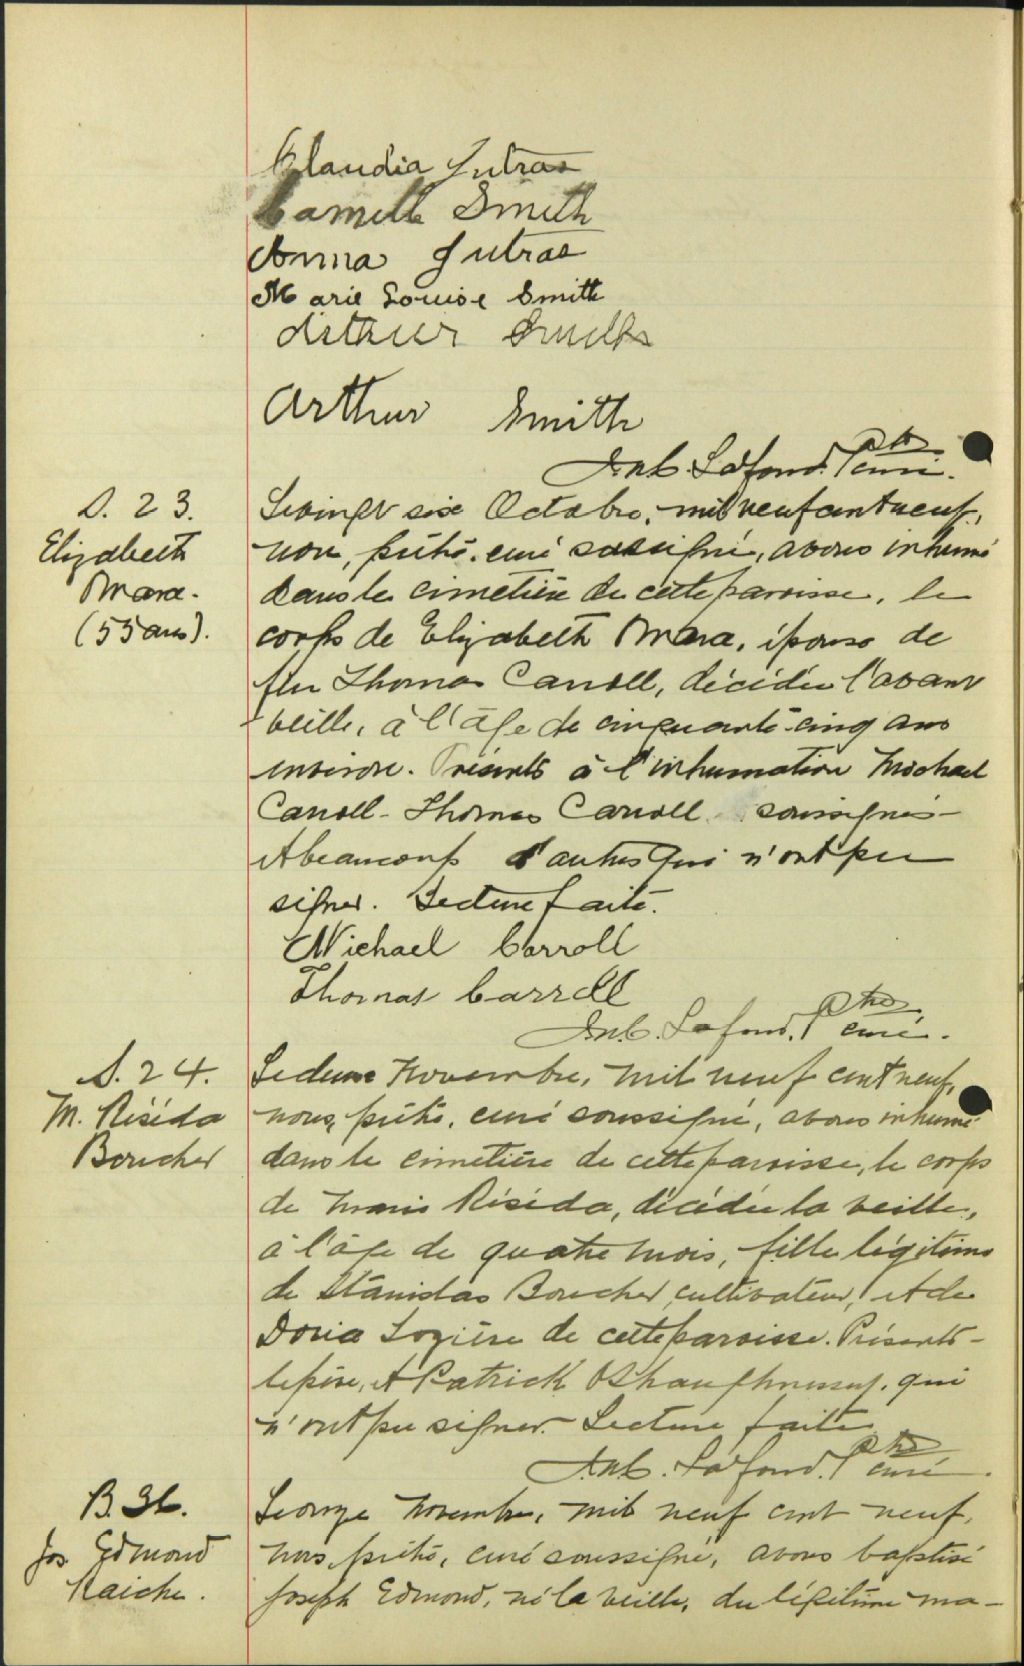 Claudia Jutras
Camille Smith
Anna Jutras
Marie Louise Smith
Arthur Smith
Arthur Smith
Jn C. Lafond. Ptre curé.
S. 23.
Elizabeth
Mara.
(55 ans).
Le vingt six Octobre, mil neuf cent neuf,
nous, prêtre, curé soussigné, avons inhumé
dans le cimetière de cette paroisse, le
corps de Elizabeth Mara, épouse de
feu Thomas Carroll, décédée l'avant
veille, à l'âge de cinquante-cinq ans
environ. Présents à l'inhumation Michael
Carroll - Thomas Carroll soussignés -
et beaucoup d'autres qui n'ont pu
signer. Lecture faite.
Michael Carroll
Thomas Carroll
Jn C. Lafond. Ptre curé.
S. 24.
M. Réséda
Boucher
Le deux Novembre, mil neuf cent neuf,
nous, prêtre, curé soussigné, avons inhumé
dans le cimetière de cette paroisse, le corps
de Marie Réséda, décédée la veille,
à l'âge de quatre mois, fille légitime
de Stanislas Boucher, cultivateur, et de
Doria Lozière de cette paroisse. Présents -
le père, et Patrick OShaughnessy, qui
n'ont pu signer. Lecture faite
Jn C. Lafond. Ptre curé.
B. 36.
Jos. Edmond
Raiche.
Le onze Novembre, mil neuf cent neuf,
nous prêtre, curé soussigné, avons baptisé
Joseph Edmond, né la veille, du légitime ma-